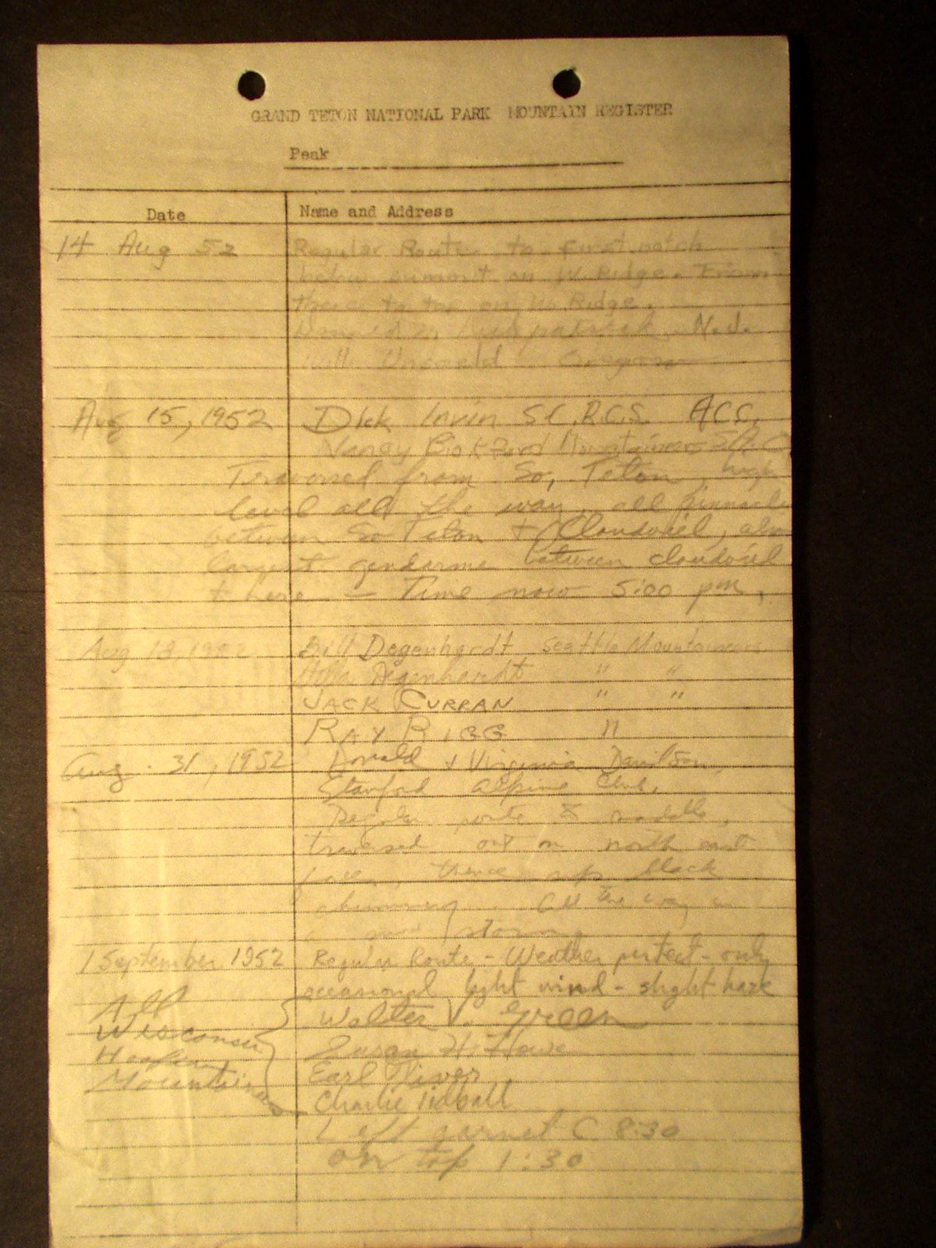 GRAND TETON NATIONAL PARK MOUNTAIN REGISTER
Peak
Date Name and Address
14 Aug 52 Regular Route to first notch
below summit on W. Ridge. From
there to top on W. Ridge.
N.J.
Willi Unsoeld Oregon
Aug 15, 1952 Dick Irvin SC, R.C.S. ACC.
Nancy Bickford Mountaineers
Traversed from So, Teton, high
level all the way, all pinnacles
between So Teton + Cloudveil, also
largest gendarme between cloudveil
+ here — Time now 5:00 pm,
Aug 18, 1952 Bill Degenhardt Seattle Mountaineers
Degenhardt " "
JACK CURRAN " "
RAY RIGG "
Aug. 31, 1952 Donald + Virginia Davidson,
Stanford Alpine Club.
Regular route to saddle,
traversed out on north east
face, thence up black
chimney. All the way in
a snow storm.
1 September 1952 Regular Route - Weather perfect - only
occasional light wind - slight haze
All Walter V. Green
Wisconsin Susan H. Howe
Hoofer Earl
Mountaineers Charlie Tidball
Left garnet C. 8:30
on top 1:30